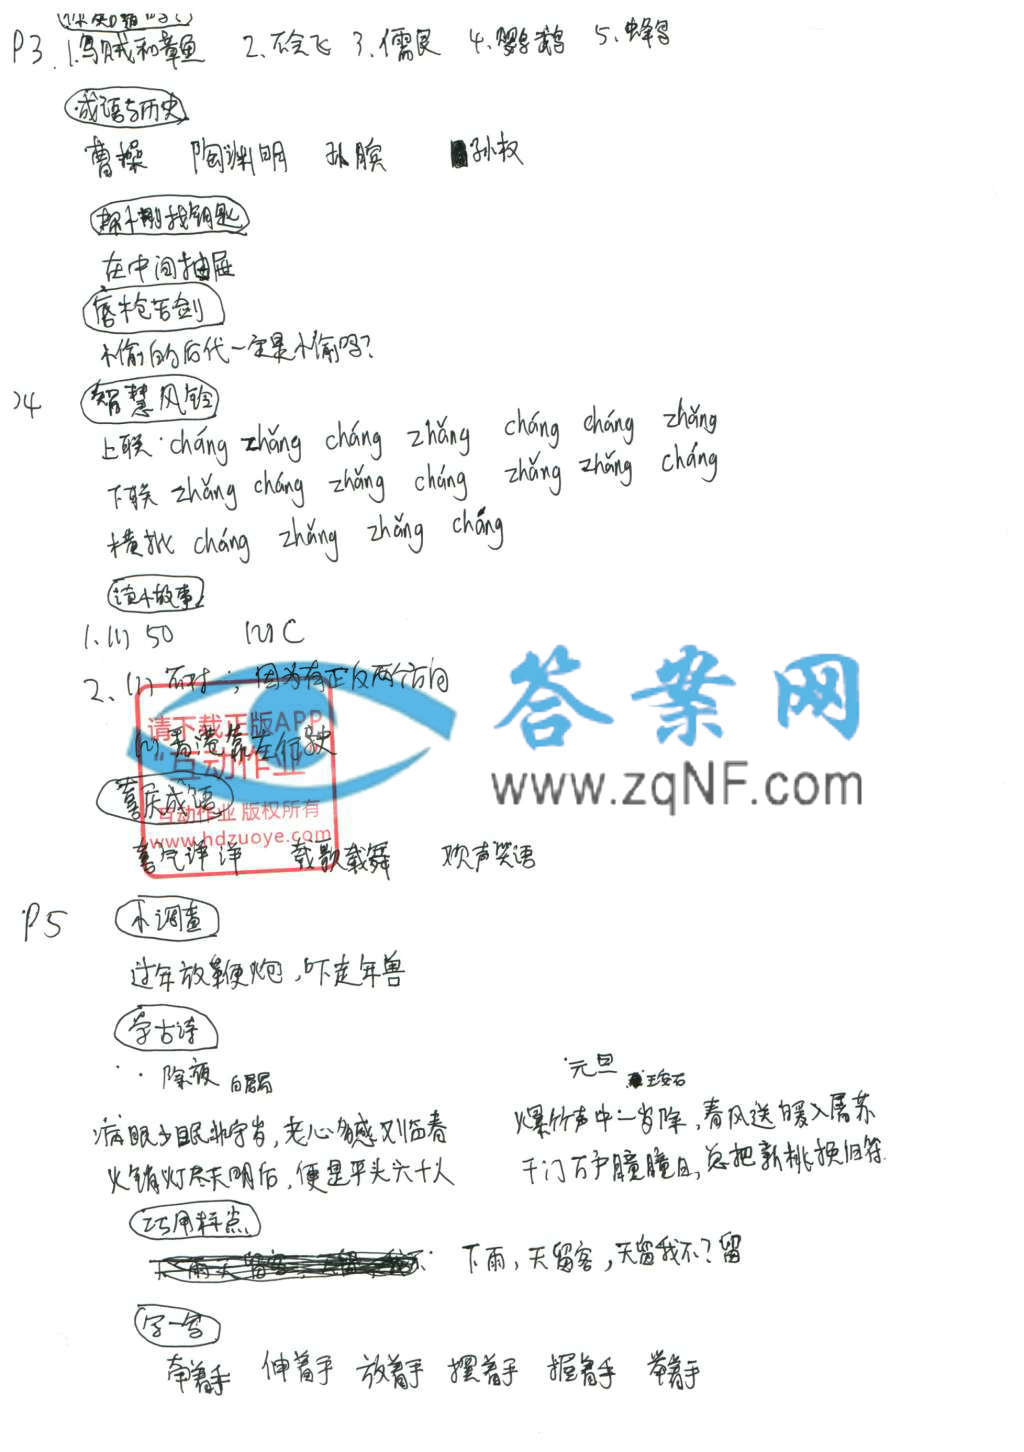 你知道吗
P3. 1.乌贼和章鱼 2.不会飞 3.儒艮 4.鹦鹉 5.蜂鸟
成语与历史
曹操 陶渊明 孙膑 孙权
帮小刚找钥匙
在中间抽屉
唇枪舌剑
小偷的后代一定是小偷吗?
P4 智慧风铃
上联: cháng zhǎng cháng zhǎng cháng cháng zhǎng
下联 zhǎng cháng zhǎng cháng zhǎng zhǎng cháng
横批 cháng zhǎng zhǎng cháng
读小故事
1.(1) 50 (2) C
2、(1) 不对; 因为有正反两个方向
(2) 香港靠左行驶
喜庆成语
喜气洋洋 载歌载舞 欢声笑语
请下载正版APP
"互动作业"
互动作业 版权所有
www.hdzuoye.com
答案网
www.zqNF.com
P5 小调查
过年放鞭炮,吓走年兽
学古诗
除夜 白居易 元旦 王安石
病眼少眠非守岁,老心多感又临春 爆竹声中一岁除,春风送暖入屠苏
火销灯尽天明后,便是平头六十人 千门万户瞳瞳日,总把新桃换旧符.
巧用标点
下雨,天留客,天留我不?留
写一写
牵着手 伸着手 放着手 摆着手 握着手 举着手